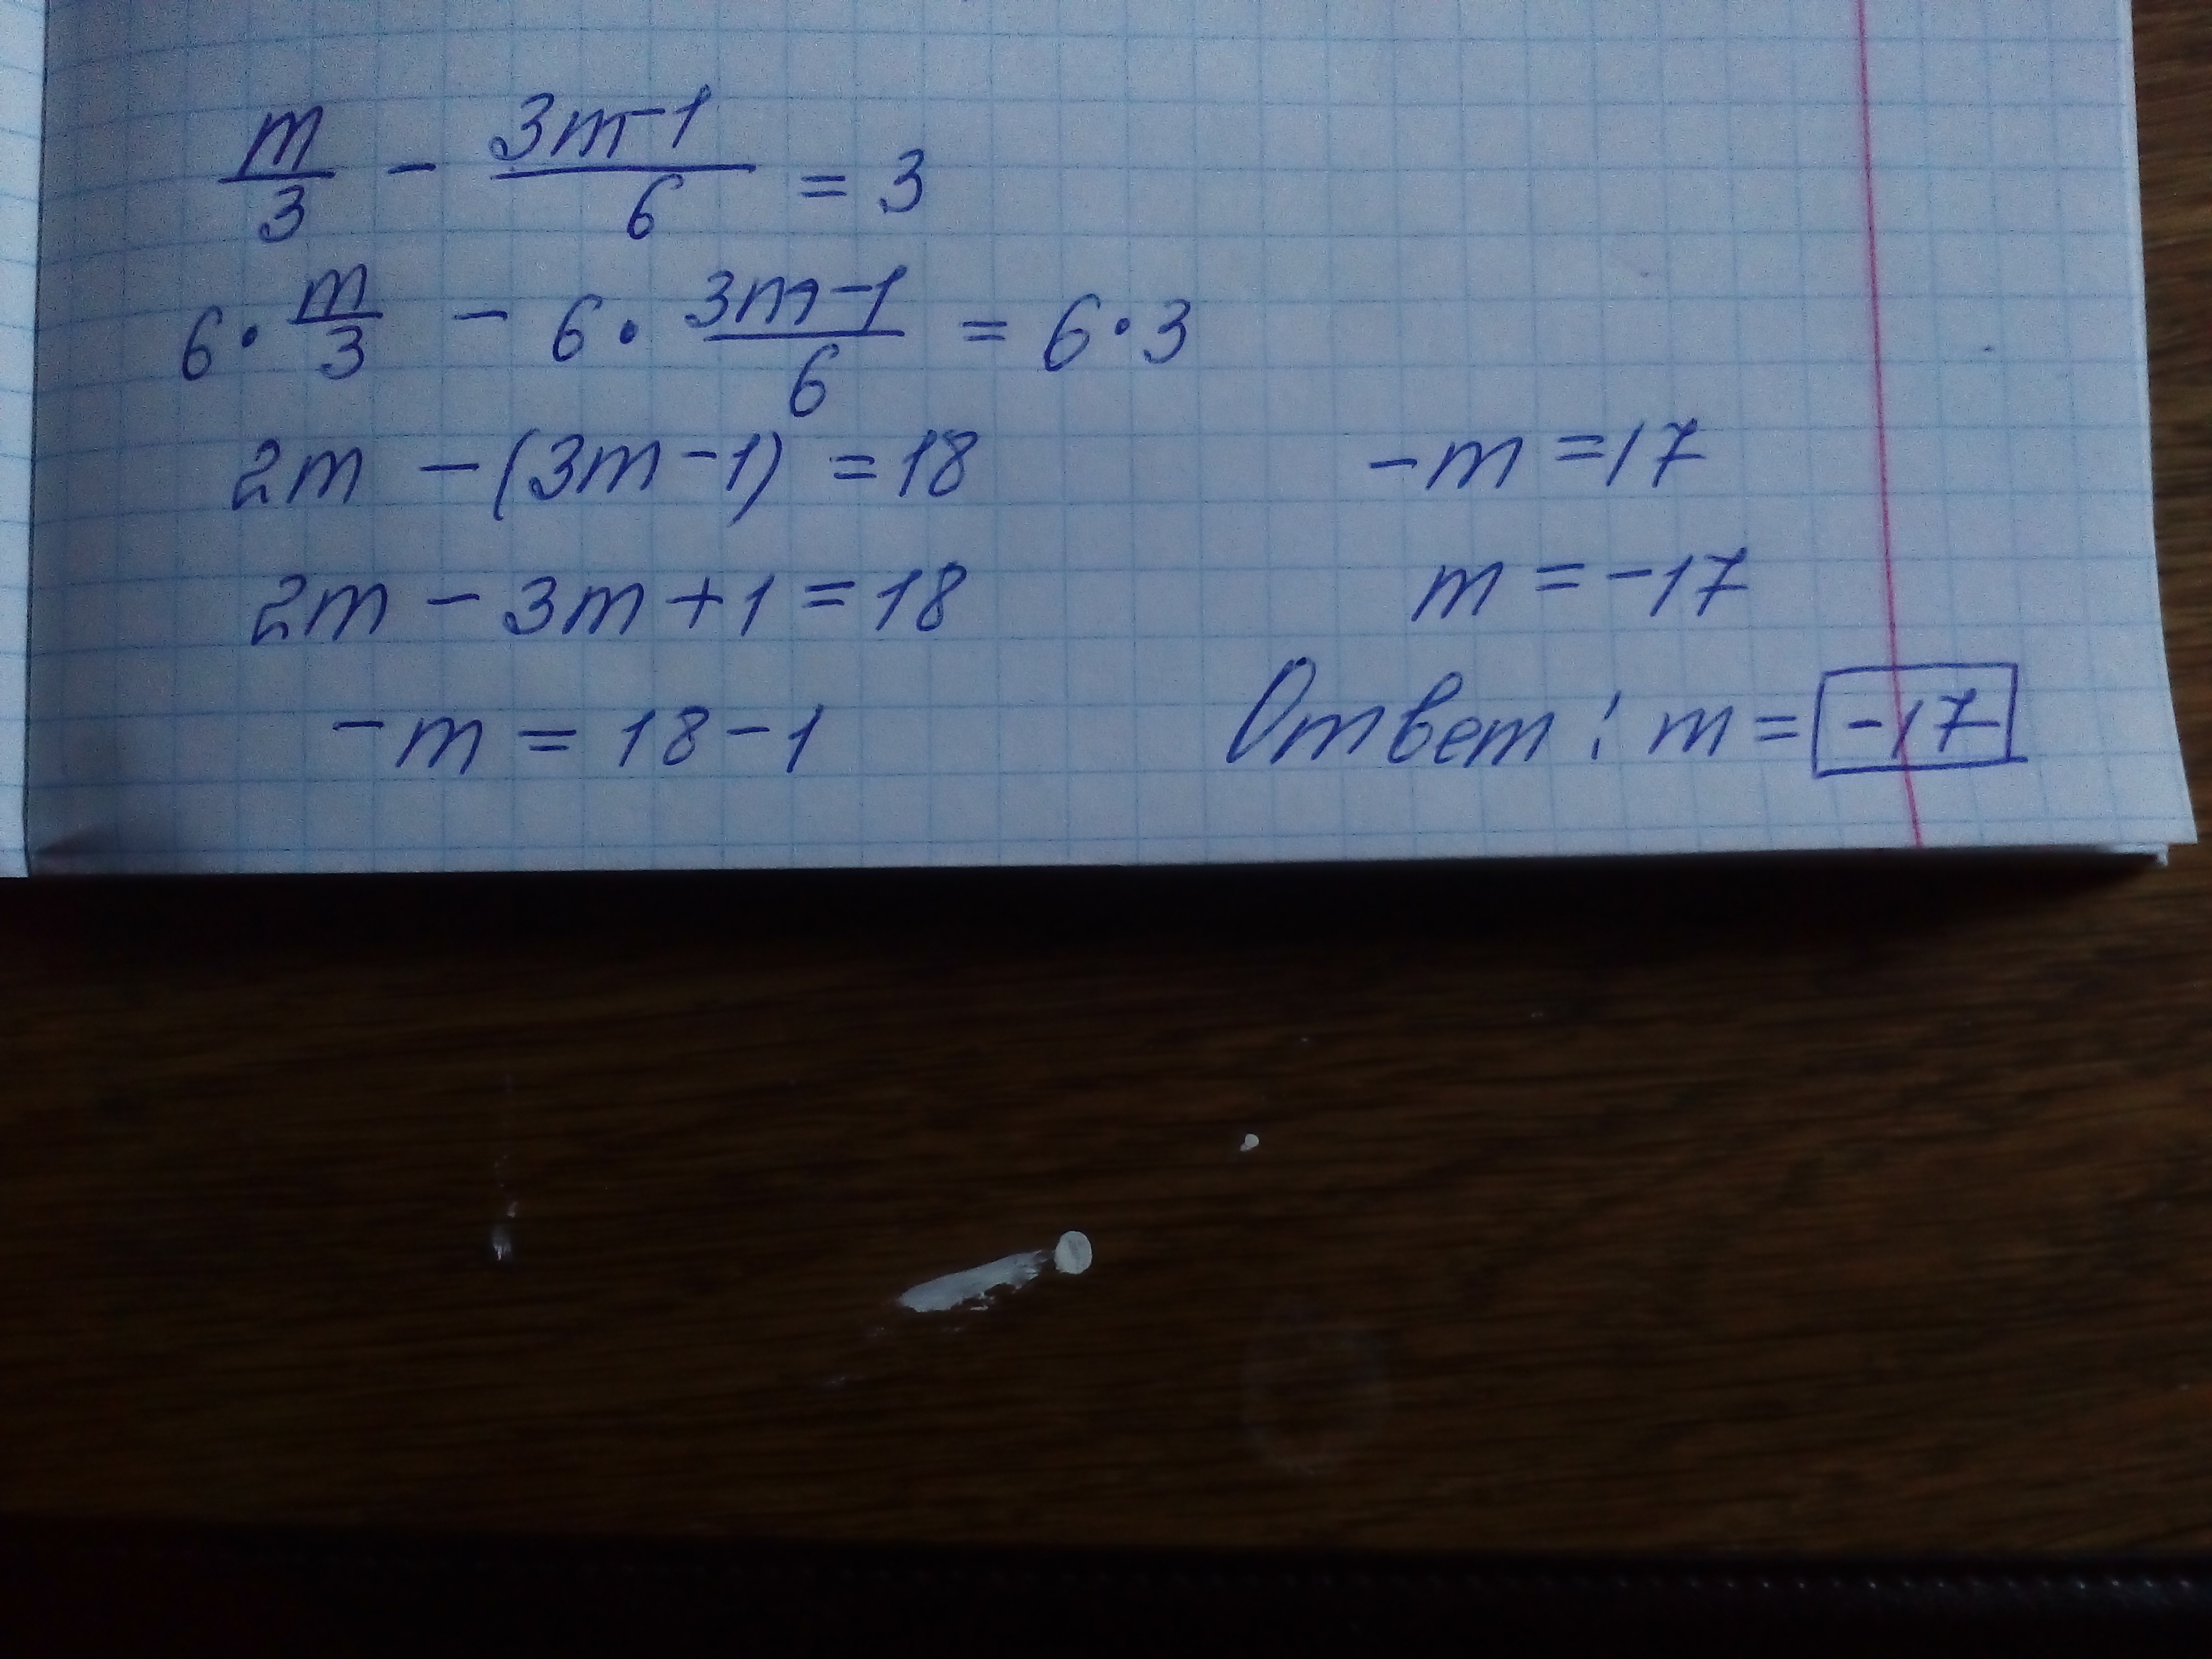 m/3 - (3m-1)/6 = 3
6 · m/3 - 6 · (3m-1)/6 = 6 · 3
2m - (3m-1) = 18
2m - 3m + 1 = 18
-m = 18 - 1
-m = 17
m = -17
Ответ: m = -17